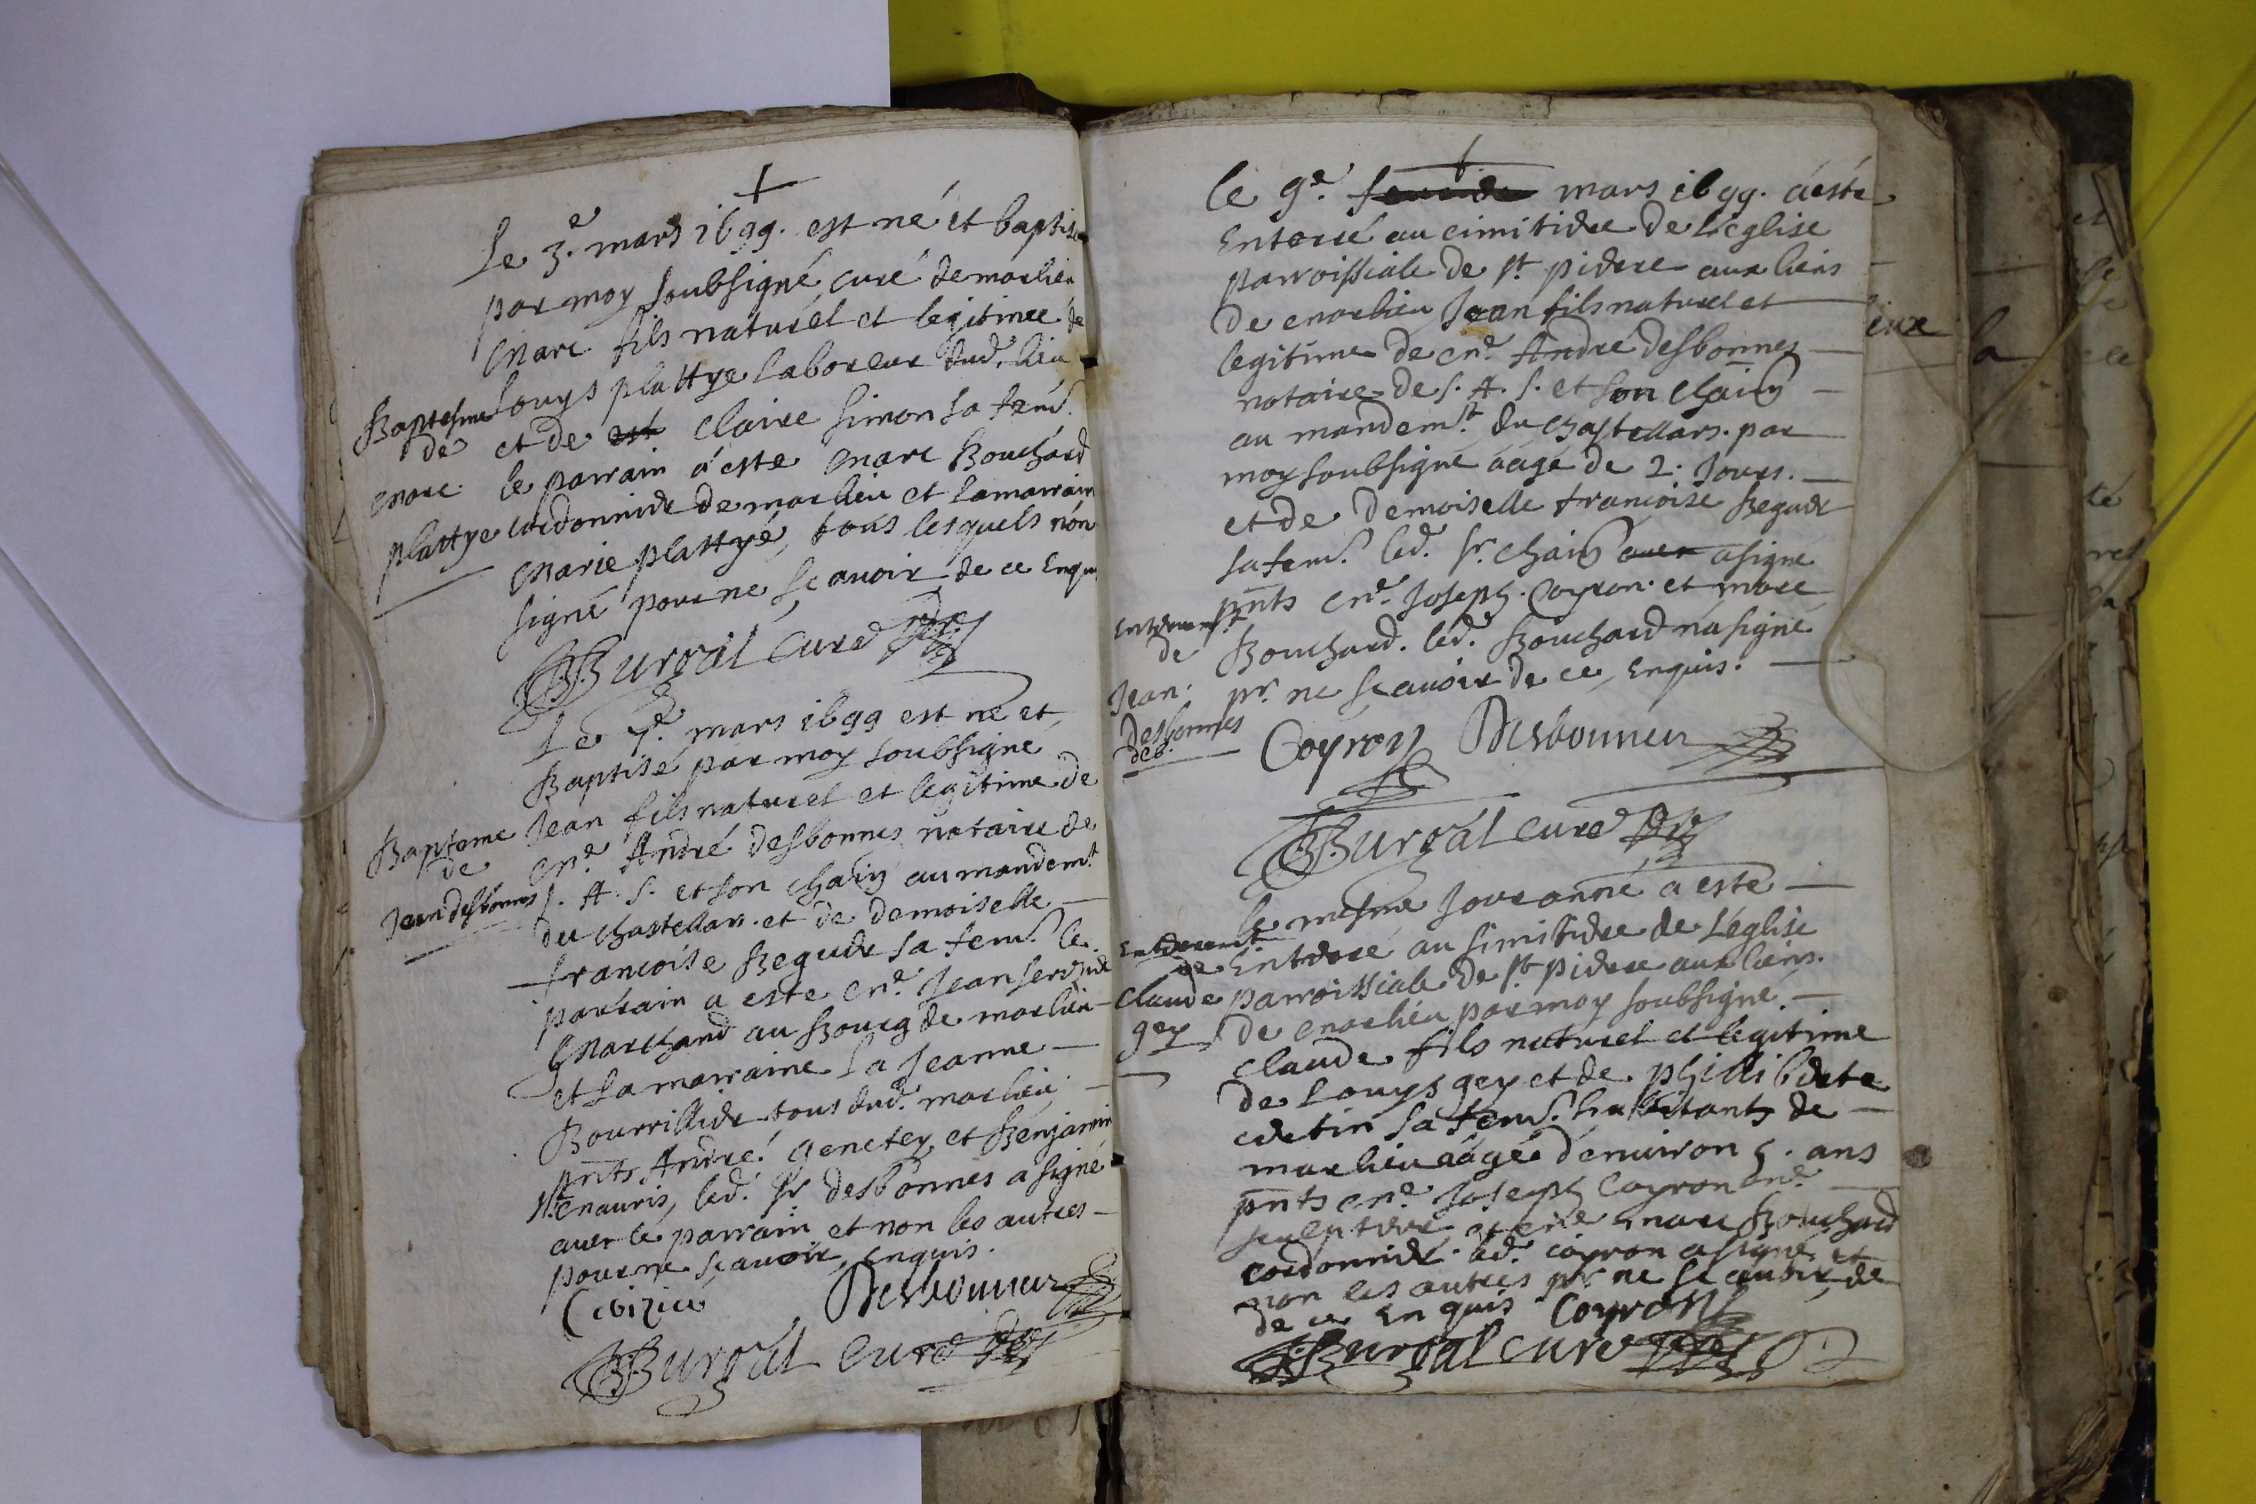 le 3.e mars 1699. est né et baptise
par moy soubsigné curé de marlieu
Marc fils naturel et legitime de
louys plattye laboreur dud. lieu
et de est claire simon sa fem.
le parrain a este marc Bouchard
cordonnier de marlieu et la marrain
Marie plattye, tous lesquels n'on
signé pour ne scavoir de ce Enqu
Baptesme
de
marc
plattye
Burgat curé
Le 7.e mars 1699 est né et
Baptisé par moy soubsigné
Jean fils naturel et legitime de
me. André desbonnes notaire de
s. A. S. et son chain au mandemt
du chastellars. et de demoiselle
francoise Beguer sa fem. le
parrain a este me. Jean
Marchand au Bourg de marlieu
et la marraine la Jeanne
Bourrillier tous dud. marlieu,
pnts, André genetey et Benjamin
led. sr desbonnes a signé
avec le parrain et non les autres
pour ne scavoir, enquis.
Bapteme
de
Jean desbonnes
Desbonnes
Burgat curé
le 9.e mars 1699. a esté
Enterré au cimitiere de L'eglise
parroissiale de st pierre aux liens
de marlieu Jean fils naturel et
legitime de me. André desbonnes
notaire de s. A. S. et son chain
au mandemt. du chastellars. par
moy soubsigné aagé de 2. Jours.
et de demoiselle francoise Beguer
sa fem. led. sr. chain avec a signé
pnts me. Joseph. Coyron. et marc
Bouchard. led. Bouchard n'a signé
pr. ne scavoir de ce, enquis.
Enterremt
de
Jean
Desbonnes
Coyron Desbonnes
Burgat curé
le mesme Jour année a este
Enterré au simitiere de L'eglise
parroissiale de st pierre aux liens
de marlieu par moy soubsigné
claude fils naturel et legitime
de Louys gey et de philliberte
cretin sa fem. habitants de
marlieu aagé d'environ 5. ans
pnts me. Joseph Coyron me.
sculpteur et me marc Bouchard
cordonnier. led. coyron a signé et
non les autres pr. ne scavoir, de
de ce enquis Coyron
Enterremt
de
Claude
gey
Burgat curé